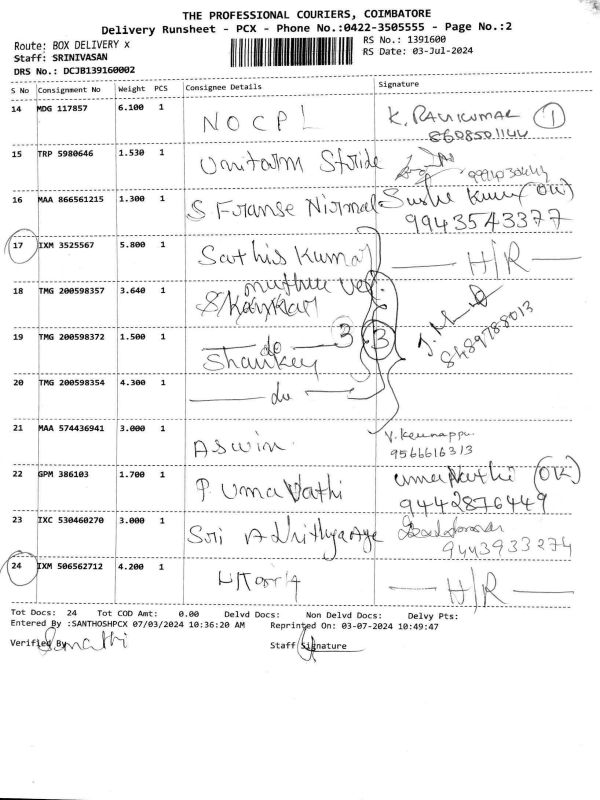 THE PROFESSIONAL COURIERS, COIMBATORE
Delivery Runsheet - PCX - Phone No.:0422-3505555 - Page No.:2
Route: BOX DELIVERY x
RS No.: 1391600
Staff: SRINIVASAN
RS Date: 03-Jul-2024
DRS No.: DCJB139160002
S No Consignment No Weight PCS Consignee Details Signature
14 MDG 117857 6.100 1 NOCPL K. RAVIKUMAR 1
15 TRP 5980646 1.530 1 Uniform Stride
16 MAA 866561215 1.300 1 S Franse Nirmal
9943543377
17 IXM 3525567 5.800 1 Sathis Kumar H/R
18 TMG 200598357 3.640 1
19 TMG 200598372 1.500 1 do 3 3
8489788013
20 TMG 200598354 4.300 1 do
21 MAA 574436941 3.000 1 Aswin
9566616313
22 GPM 386103 1.700 1 P. Uma Vathi
9442876449
23 IXC 530460270 3.000 1 Sri
9443933274
24 IXM 506562712 4.200 1 H/R
Tot Docs: 24 Tot COD Amt: 0.00 Delvd Docs: Non Delvd Docs: Delvy Pts:
Entered By :SANTHOSHPCX 07/03/2024 10:36:20 AM Reprinted On: 03-07-2024 10:49:47
Verified By
Staff Signature